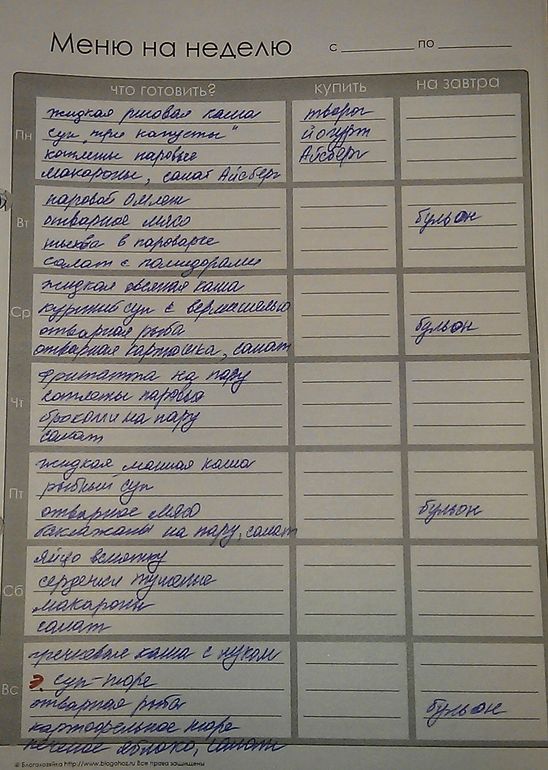 Меню на неделю с по
что готовить? купить на завтра
Пн
жидкая рисовая каша творог
суп "три капусты" йогурт
котлеты паровые Айсберг
макароны, салат Айсберг
Вт
паровой омлет
отварное мясо бульон
тыква в пароварке
салат с помидорами
Ср
жидкая овсяная каша
куриный суп с вермишелью
отварная рыба бульон
отварная картошка, салат
Чт
фритатта на пару
котлеты паровые
брокколи на пару
салат
Пт
жидкая манная каша
рыбный суп
отварное мясо бульон
баклажаны на пару, салат
Сб
яйцо всмятку
сердечки тушеные
макароны
салат
Вс
гречневая каша с луком
суп-пюре
отварная рыба бульон
картофельное пюре
печеное яблоко, салат
© Благохозяйка http://www.blogohoz.ru Все права защищены